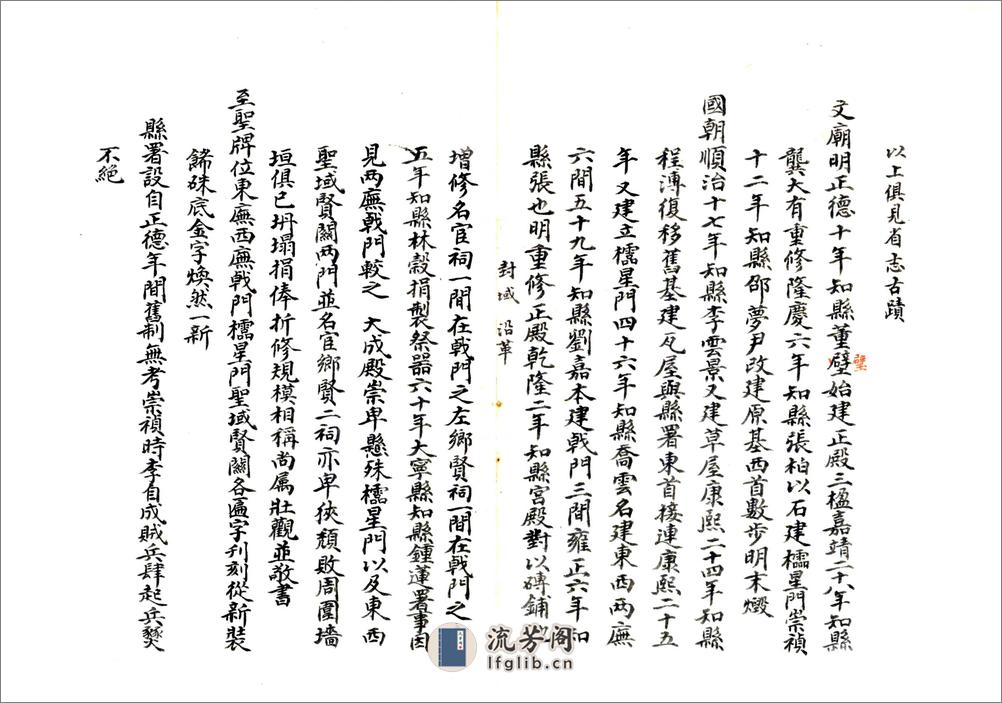 以上俱見省志古蹟
文廟明正德十年知縣董璧始建正殿三楹嘉靖二十八年知縣
璧
龔大有重修隆慶六年知縣張柏以石建櫺星門崇禎
十二年知縣邵夢尹改建原基西首數步明末燬
國朝順治十七年知縣李雲景又建草屋康熙二十四年知縣
程溥復移舊基建瓦屋與縣署東首接連康熙二十五
年又建立櫺星門四十六年知縣喬雲名建東西兩廡
六間五十九年知縣劉嘉本建戟門三間雍正六年知
縣張也明重修正殿乾隆二年知縣宮殿對以磚鋪
封域 沿革
增修名宦祠一間在戟門之左鄉賢祠一間在戟門之
五年知縣林穀捐製祭器六十年大寧縣知縣鍾蓮署事因
見兩廡戟門較之 大成殿崇卑懸殊櫺星門以及東西
聖域賢關兩門並名宦鄉賢二祠亦卑俠頹敗周圍墻
垣俱已坍塌捐俸折修規模相稱尚屬壯觀並敬書
至聖牌位東廡西廡戟門櫺星門聖域賢關各匾字刊刻從新裝
餙硃底金字煥然一新
縣署設自正德年間舊制無考崇禎時李自成賊兵肆起兵燹
不絕
流芳阁
lfglib.cn